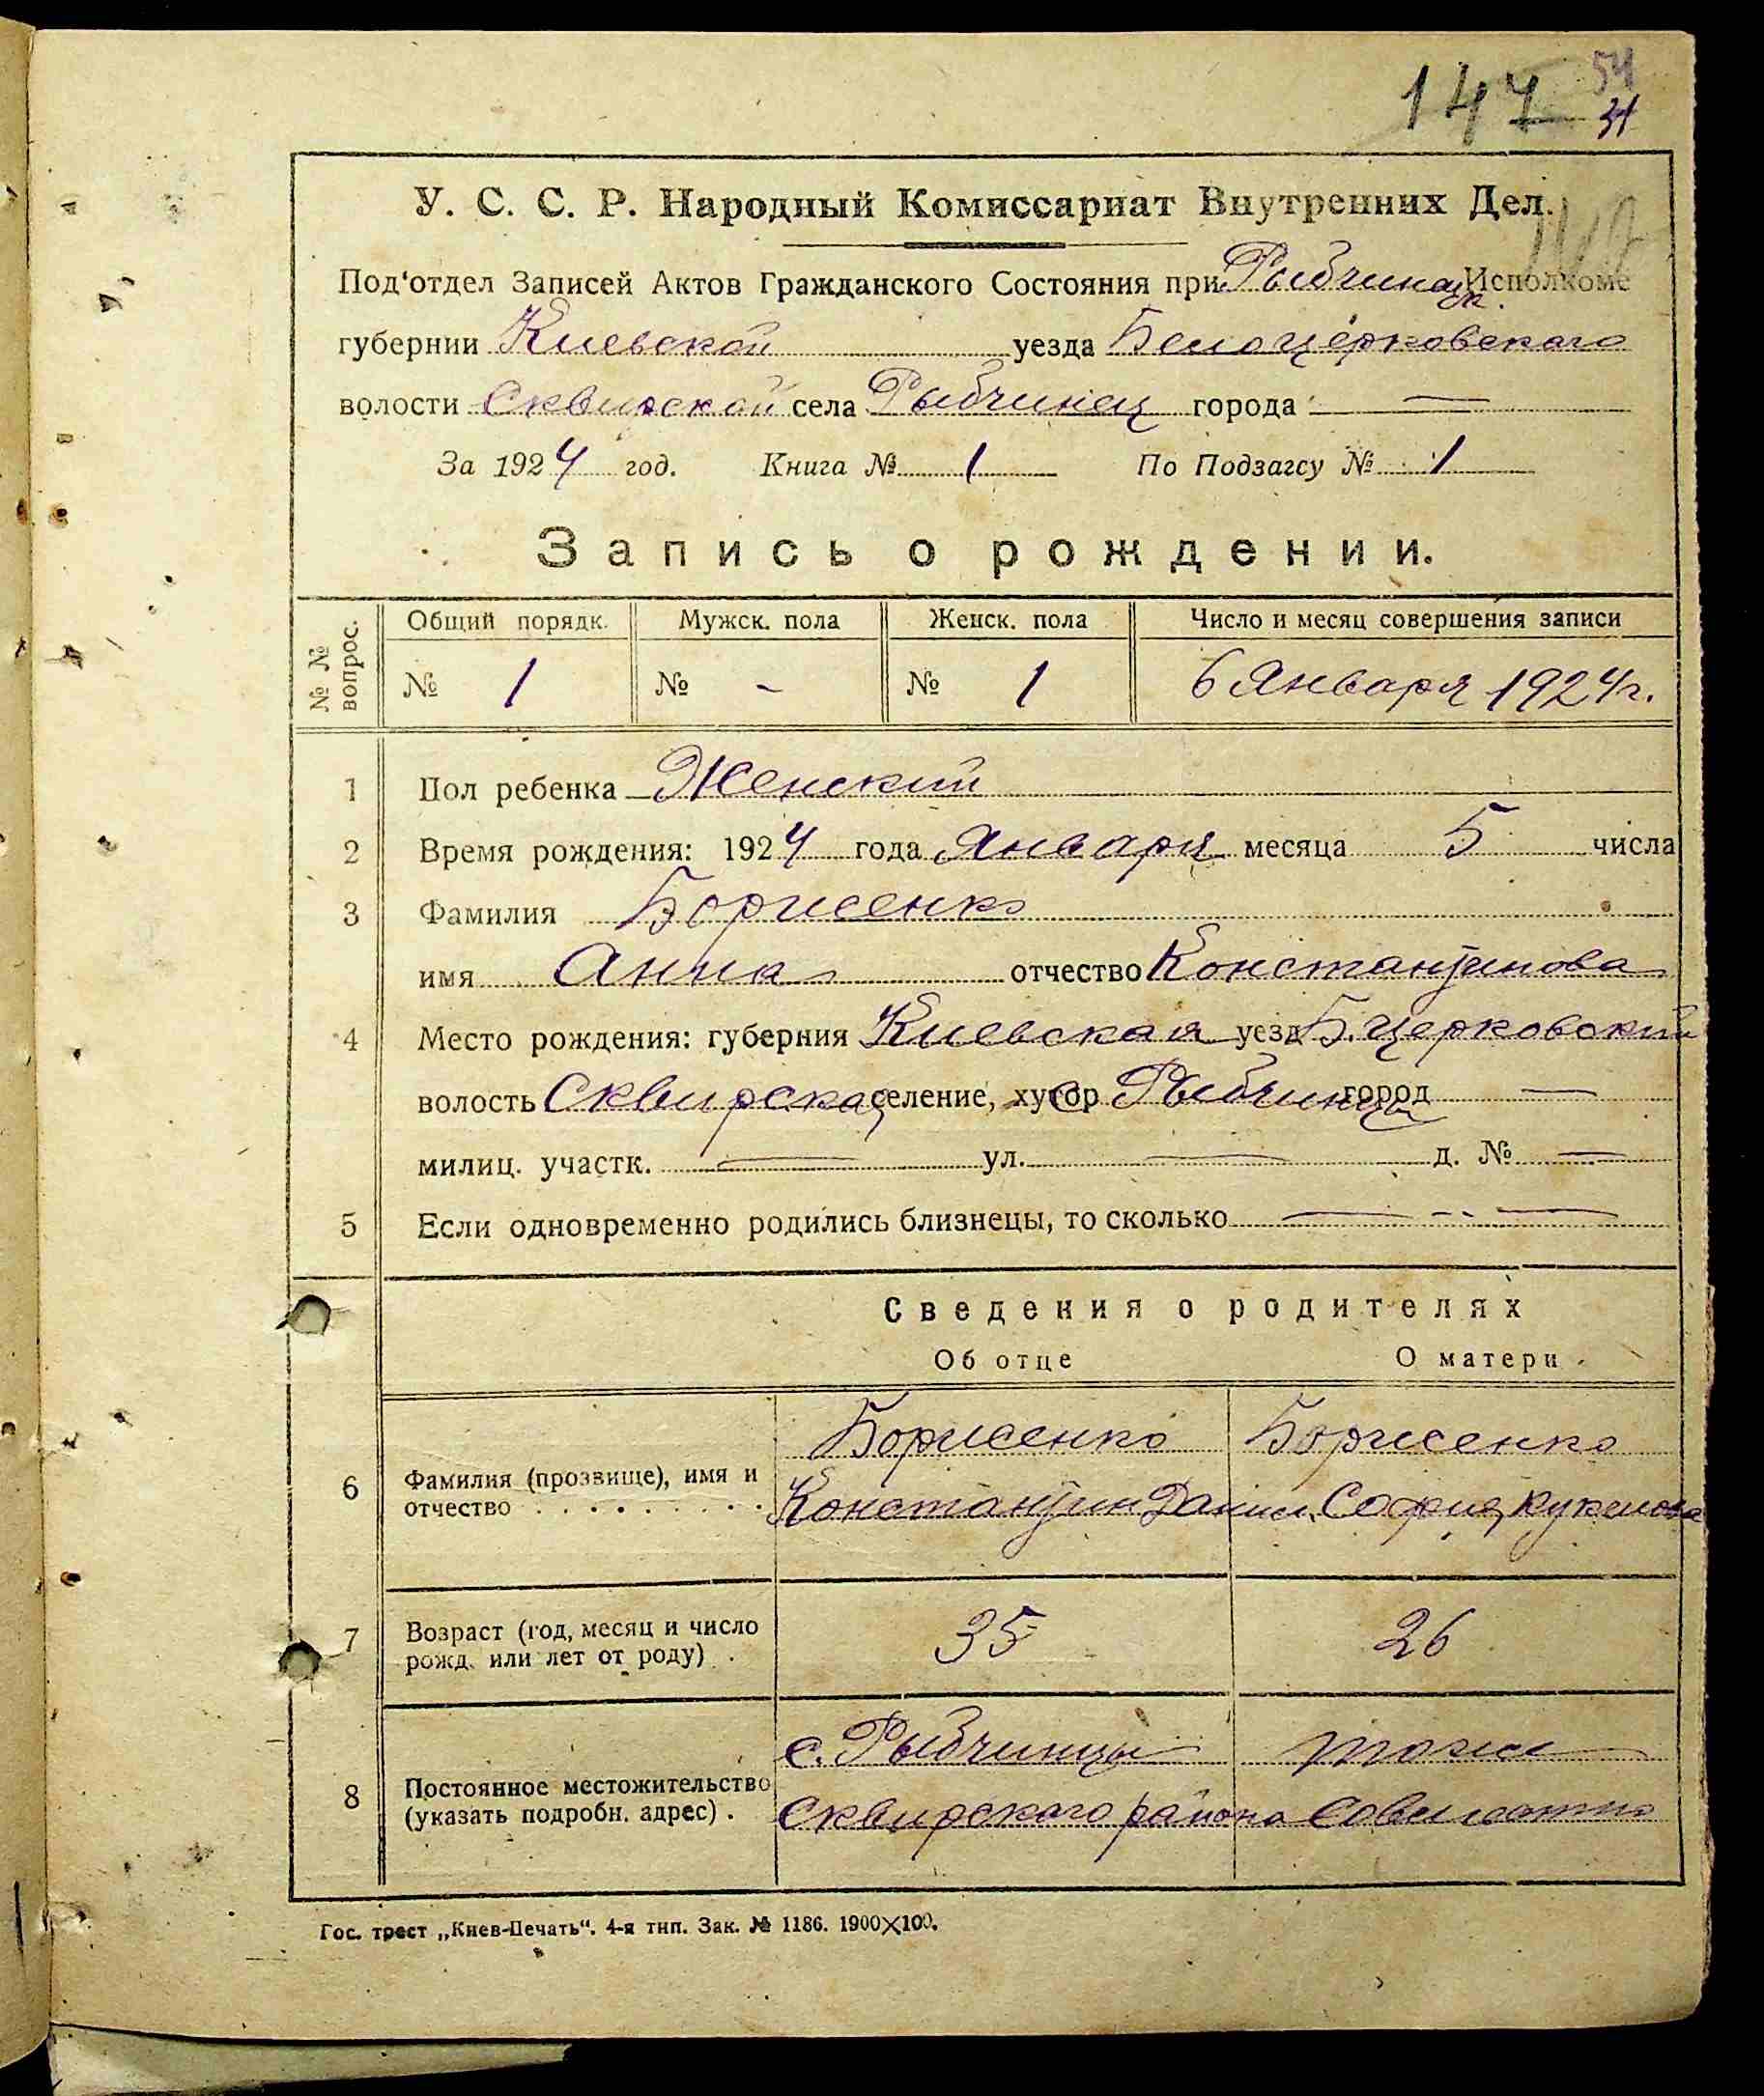 147 54
31
У. С. С. Р. Народный Комиссариат Внутренних Дел.
Под'отдел Записей Актов Гражданского Состояния при Рыбчинецк. Исполкоме
губернии Киевской уезда Белоцерковскаго
волости Сквирской села Рыбчинец города —
За 1924 год. Книга № 1 По Подзагсу № 1
Запись о рождении.
№ № вопрос. Общий порядк. Мужск. пола Женск. пола Число и месяц совершения записи
№ 1 № - № 1 6 Января 1924 г.
1 Пол ребенка Женский
2 Время рождения: 1924 года Января месяца 5 числа
3 Фамилия Борисенко
имя Анна отчество Константинова
4 Место рождения: губерния Киевская уезд Б. Церковский
волость Сквирская селение, хутор с Рыбчинцы город —
милиц. участк. — ул. — д. № —
5 Если одновременно родились близнецы, то сколько — -- —
Сведения о родителях
Об отце О матери
Борисенко Борисенко
6 Фамилия (прозвище), имя и
отчество Константин Данил. София
7 Возраст (год, месяц и число
рожд. или лет от роду) . 35 26
с. Рыбчинцы тоже
8 Постоянное местожительство
(указать подробн. адрес) . Сквирского района совместно
Гос. трест „Киев-Печать“. 4-я тип. Зак. № 1186. 1900×100.